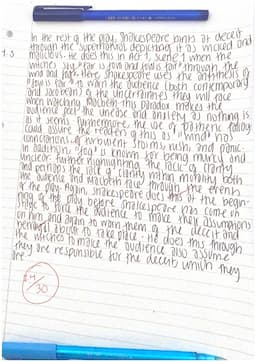 In the rest of the play, Shakespeare hints at deceit
through the supernatural depicting it as wicked and
malicious. He does this in Act 1 scene 1 when the
witches say "fair is foul and foul is fair" through the
wind and fog. Here, Shakespeare uses the antithesis of
"foul is fair" to warn the audience (both contemporary
and Jacobean) of the uncertainties they will face
when watching Macbeth. This paradox makes the
audience feel the unease and anxiety as nothing is
as it seems. Furthermore, the use of pathetic fallacy
could assure the readers of this as "wind" has
connotations of turbulent storms, rush, and panic.
In addition, "fog" is known for being murky and
unclear. Further highlighting the lack of clarity
and perhaps the lack of clarity within morality both
the audience and Macbeth face through the events
of the play. Again, Shakespeare does this at the begin-
ning of the play before
on him and again to warn them of the deceit and
betrayal about to take place. He does this through
the witches to make the audience also assume
they are responsible for the deceit which they
are
24
30